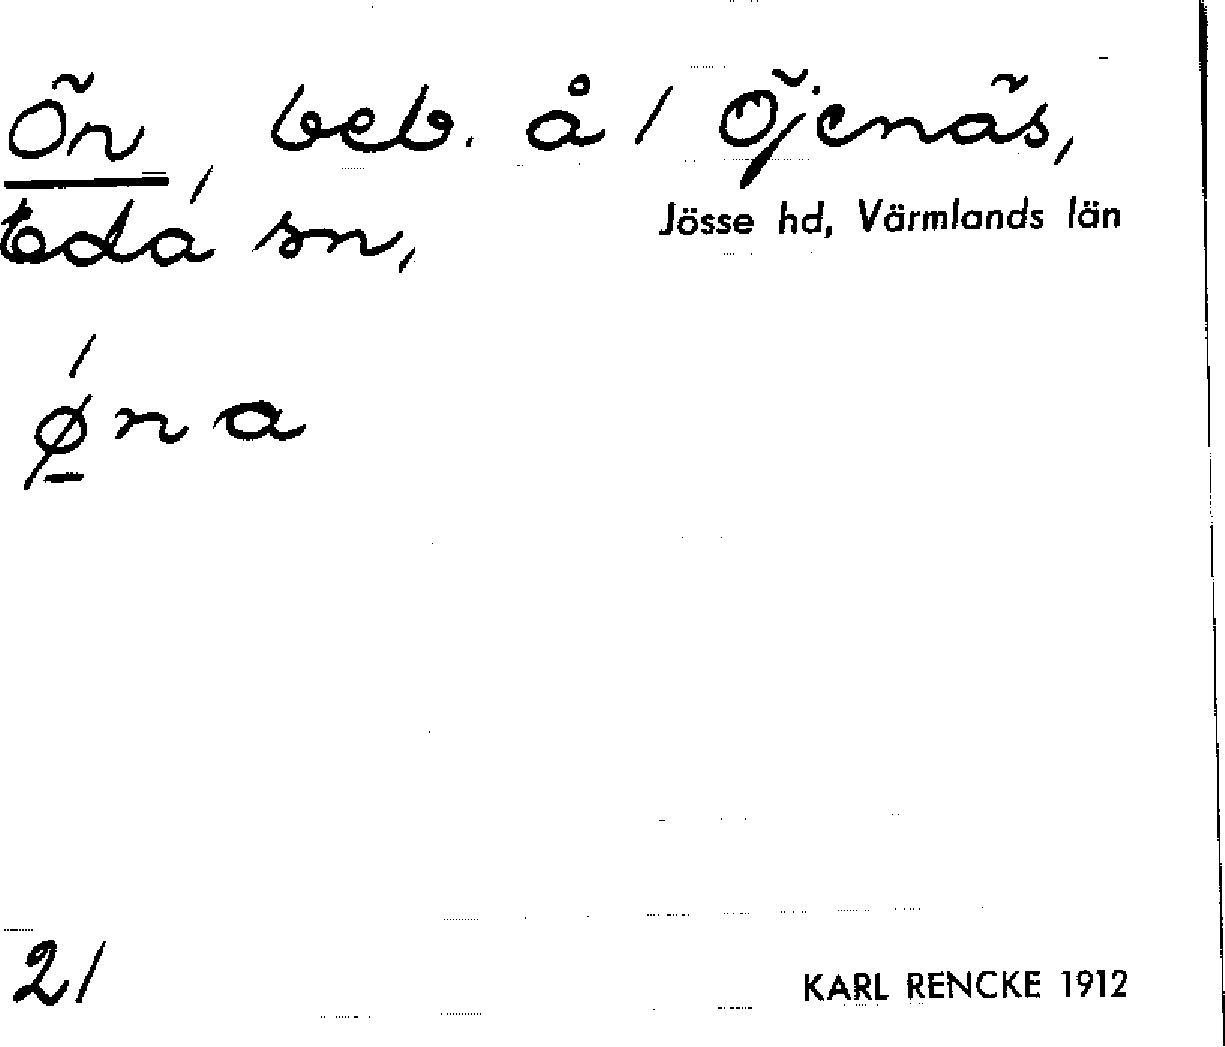 Ön, beb. å 1 Öjenäs,
Eda sn, Jösse hd, Värmlands län
ǿna
21 KARL RENCKE 1912